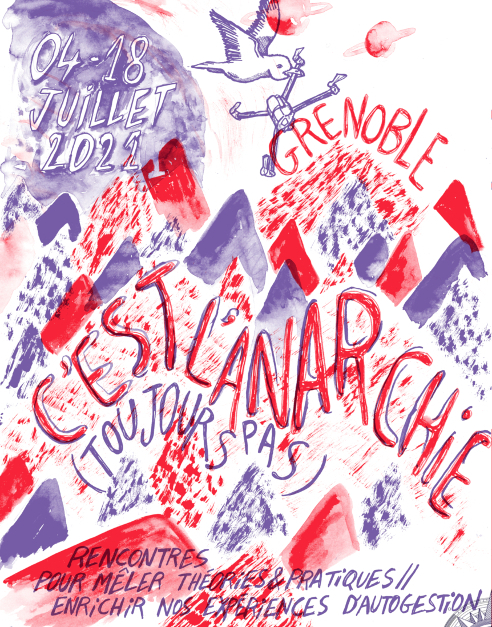 04-18
JUiLLET
2021
GRENOBLE
C'EST L'ANARCHiE
(TOUJOURS PAS)
RENCONTRES
POUR MÊLER THÉORiES & PRATiQUES //
ENRiCHiR NOS EXPÉRiENCES D'AUTOGESTiON